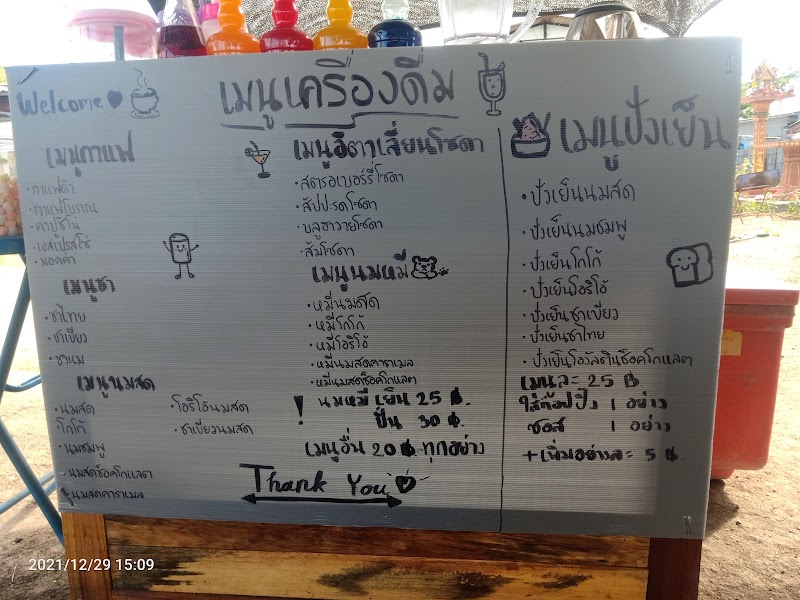 Welcome
เมนูเครื่องดื่ม
เมนูกาแฟ
• กาแฟดำ
• กาแฟโบราณ
• คาปูชิโน่
• เอสเปรสโซ่
• มอคค่า
เมนูชา
• ชาไทย
• ชาเขียว
• ชานม
เมนูนมสด
• นมสด
โกโก้
• นมชมพู
• นมสดช็อคโกแลต
• นมสดคาราเมล
• โอริโอ้นมสด
• ชาเขียวนมสด
เมนูอิตาเลี่ยนโซดา
• สตรอเบอร์รี่โซดา
• สัปปะรดโซดา
• บลูฮาวายโซดา
• ส้มโซดา
เมนูนมหมี
• หมีนมสด
• หมีโกโก้
• หมีโอริโอ้
• หมีนมสดคาราเมล
• หมีนมสดช็อคโกแลต
! นมหมี เย็น 25 ฿.
ปั่น 30 ฿.
เมนูอื่น 20 ฿ ทุกอย่าง
Thank You
เมนูปังเย็น
• ปังเย็นนมสด
• ปังเย็นนมชมพู
• ปังเย็นโกโก้
• ปังเย็นโอริโอ้
• ปังเย็นชาเขียว
• ปังเย็นชาไทย
• ปังเย็นโอวัลตินช็อคโกแลต
เมนูละ 25 ฿
ใส่ท็อปปิ้ง 1 อย่าง
ซอส 1 อย่าง
+ เพิ่มอย่างละ 5 ฿.
2021/12/29 15:09